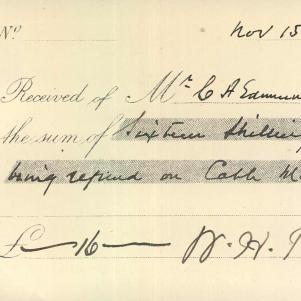 Nº Nov 15
Received of Mr C A
the sum of Sixteen Shillings
being refund on Cable
£ — 16 —
W. H.